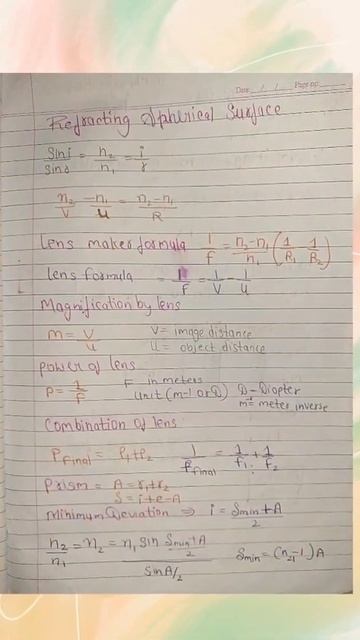 Date / / Page no:
Refracting Spherical Surface
Sin i / Sin r = n₂/n₁ = i/r
n₂/V - n₁/u = n₂-n₁/R
Lens maker formula 1/F = n₂-n₁/n₁ (1/R₁ - 1/R₂)
Lens formula = 1/F = 1/V - 1/u
Magnification by lens
m = V/u V = image distance
u = object distance
Power of lens
P = 1/F F in meters
Unit (m-1 or D) D - Diopter
m⁻¹ = meter inverse
Combination of lens
P final = P₁+P₂ 1/F final = 1/F₁ + 1/F₂
Prism = A = r₁+r₂
δ = i+e-A
Minimum Deviation ⇒ i = δmin+A/2
n₂/n₁ = n₂ = n₁ sin δmin+A/2 / sin A/2 δmin = (n₂₁-1)A